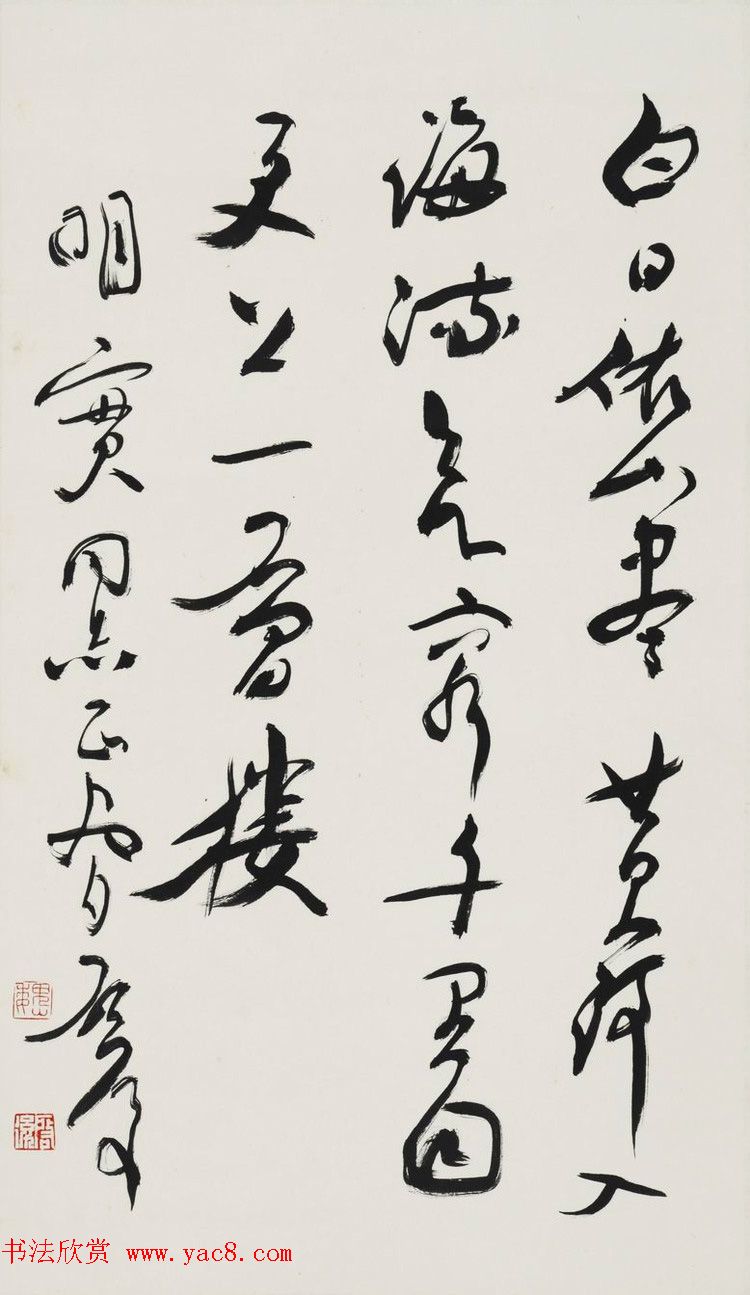 白日依山盡黄河入
海流欲窮千里目
更上一層樓
明實同志正 启后
书法欣赏 www.yac8.com